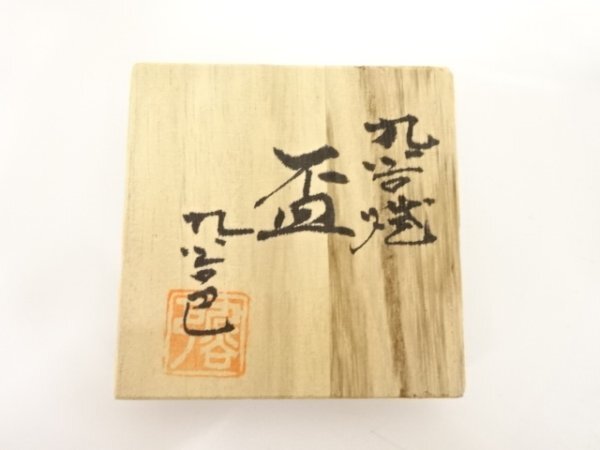 九谷焼
盃
九谷邑